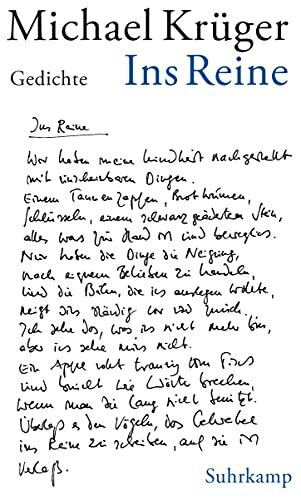 Michael Krüger
Gedichte Ins Reine
Ins Reine
Wir haben meine Kindheit nachgestellt
mit unscheinbaren Dingen.
Einem Tannenzapfen, Brotkrumen,
Schlüsseln, einem schwarz geäderten Stein,
alles was zur Hand ist und beweglich.
Nur haben die Dinge die Neigung,
nach eignem Belieben zu handeln,
und die Bühne, die ich auslegen wollte,
neigt sich ständig vor und zurück.
Ich sehe das, was ich nicht mehr bin,
aber ich sehe mich nicht.
Ein Apfel rollt traurig vom Tisch
und bricht wie Worte brechen,
wenn man die lang nicht benützt.
Überlaß es den Vögeln, das Gekrakel
ins Reine zu schreiben, auf die ist
Verlaß.
Suhrkamp